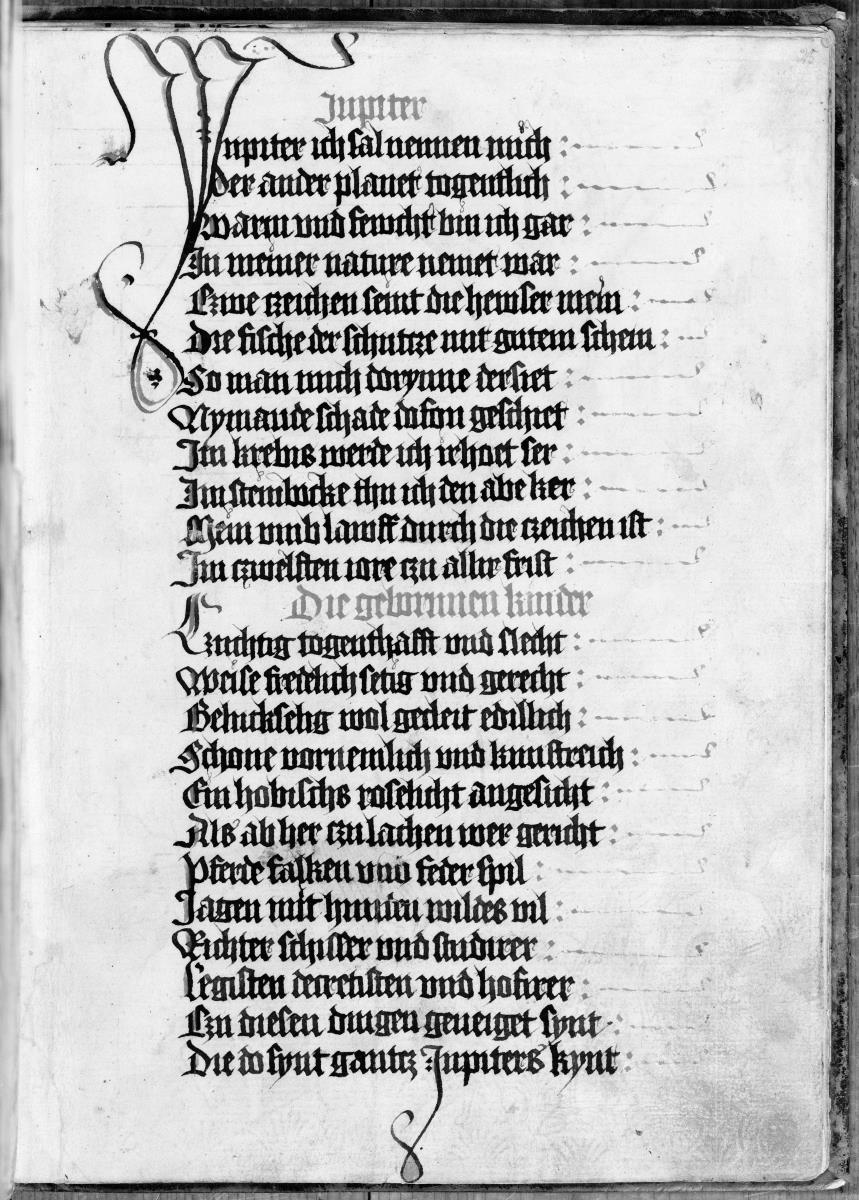 Jupiter
Jupiter ich sal nennen mich :
Der ander planet togentlich :
Warm vnd fewcht bin ich gar :
In meiner nature nemet war :
Czwe czeichen seint die hewser mein :
Die fische der schutcze mit gutem schein :
So man mich dorynne dersiet :
Nymande schade dofon geschiet :
Im krebis werde ich irhoet ser :
Im steinbocke thu ich den abe ker :
Mein vmb lawff durch die czeichen ist :
Im czwelften iore czu allir frist :
Die gebornnen kinder
Czuchtig togenthafft vnd slecht :
Weise fredelich setig vnd gerecht :
Geluckselig wol gecleit edillich :
Schone vornemlich vnd kunstreich :
Ein hobischs roselicht angesicht :
Als ab her czu lachen wer gericht :
Pferde falken vnd feder spil :
Jagen mit hunden wildes vil :
Richter schisser vnd studirer :
Legisten decretisten vnd hofirer :
Czu diesen dingen geneiget synt :
Die do synt gantcz Jupiters kynt :